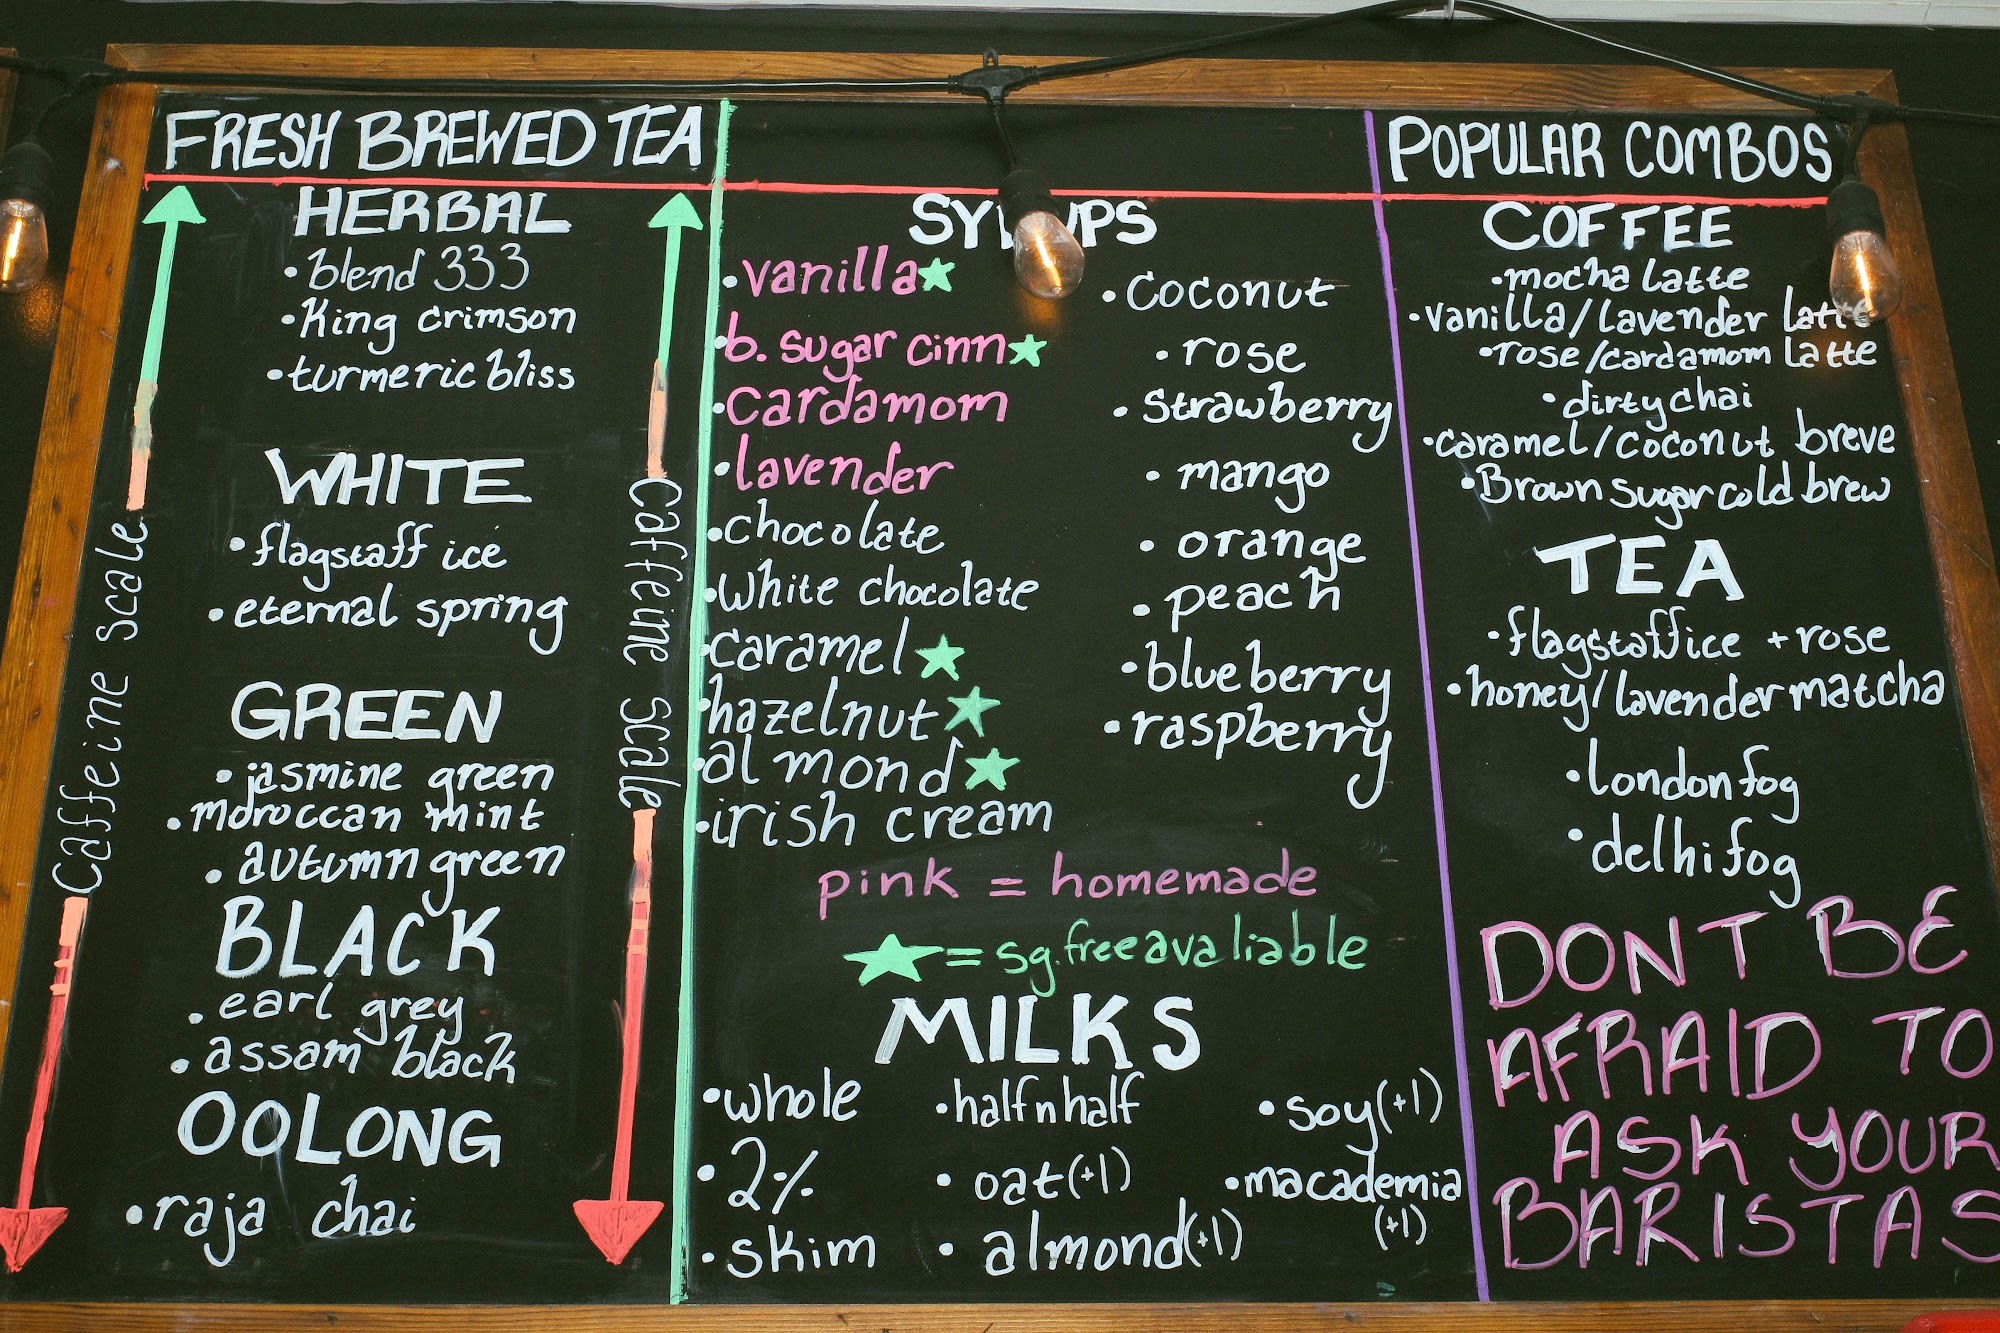 FRESH BREWED TEA
HERBAL
• blend 333
• King crimson
• turmeric bliss
WHITE
• flagstaff ice
• eternal spring
GREEN
• jasmine green
• moroccan mint
• autumn green
BLACK
• earl grey
• assam black
OOLONG
• raja chai
Caffeine Scale
Caffeine Scale
SYRUPS
• vanilla★
• b. sugar cinn★
• cardamom
• lavender
• chocolate
• white chocolate
• caramel★
• hazelnut★
• almond★
• irish cream
• coconut
• rose
• strawberry
• mango
• orange
• peach
• blueberry
• raspberry
pink = homemade
★ = sg. free avaliable
MILKS
• whole
• 2%
• skim
• half n half
• oat (+1)
• almond (+1)
• soy (+1)
• macademia
(+1)
POPULAR COMBOS
COFFEE
• mocha latte
• vanilla/lavender latte
• rose/cardamom latte
• dirty chai
• caramel/coconut breve
• Brown sugar cold brew
TEA
• flagstaff ice + rose
• honey/lavender matcha
• london fog
• delhi fog
DONT BE
AFRAID TO
ASK YOUR
BARISTAS